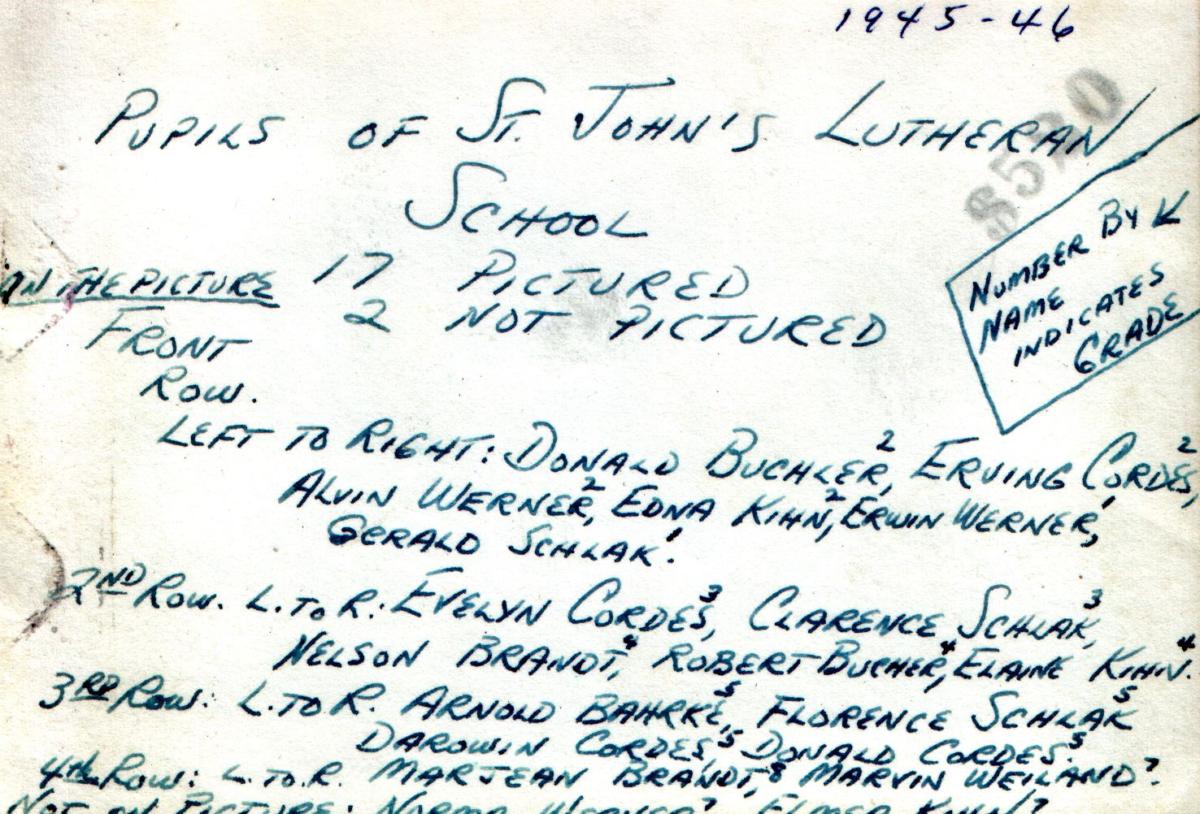 1945-46
8520
PUPILS OF ST. JOHN'S LUTHERAN
SCHOOL
NUMBER BY
NAME
INDICATES
GRADE
IN THE PICTURE 17 PICTURED
2 NOT PICTURED
FRONT
ROW.
LEFT TO RIGHT: DONALD BUCHLER,2 ERVING CORDES,2
ALVIN WERNER,2 EDNA KIHN,2 ERWIN WERNER,1
GERALD SCHLAK1.
2ND ROW. L. TO R: EVELYN CORDES,3 CLARENCE SCHLAK,3
NELSON BRANDT,4 ROBERT BUCHER,4 ELAINE KIHN.4
3RD ROW: L. TO R. ARNOLD BAHRKE,5 FLORENCE SCHLAK5
DAROWIN CORDES,5 DONALD CORDES.5
4th ROW: L. TO. R. MARJEAN BRANDT,8 MARVIN WEILAND7.
NOT ON PICTURE: NORMA WERNER7 ELMER KIHN7